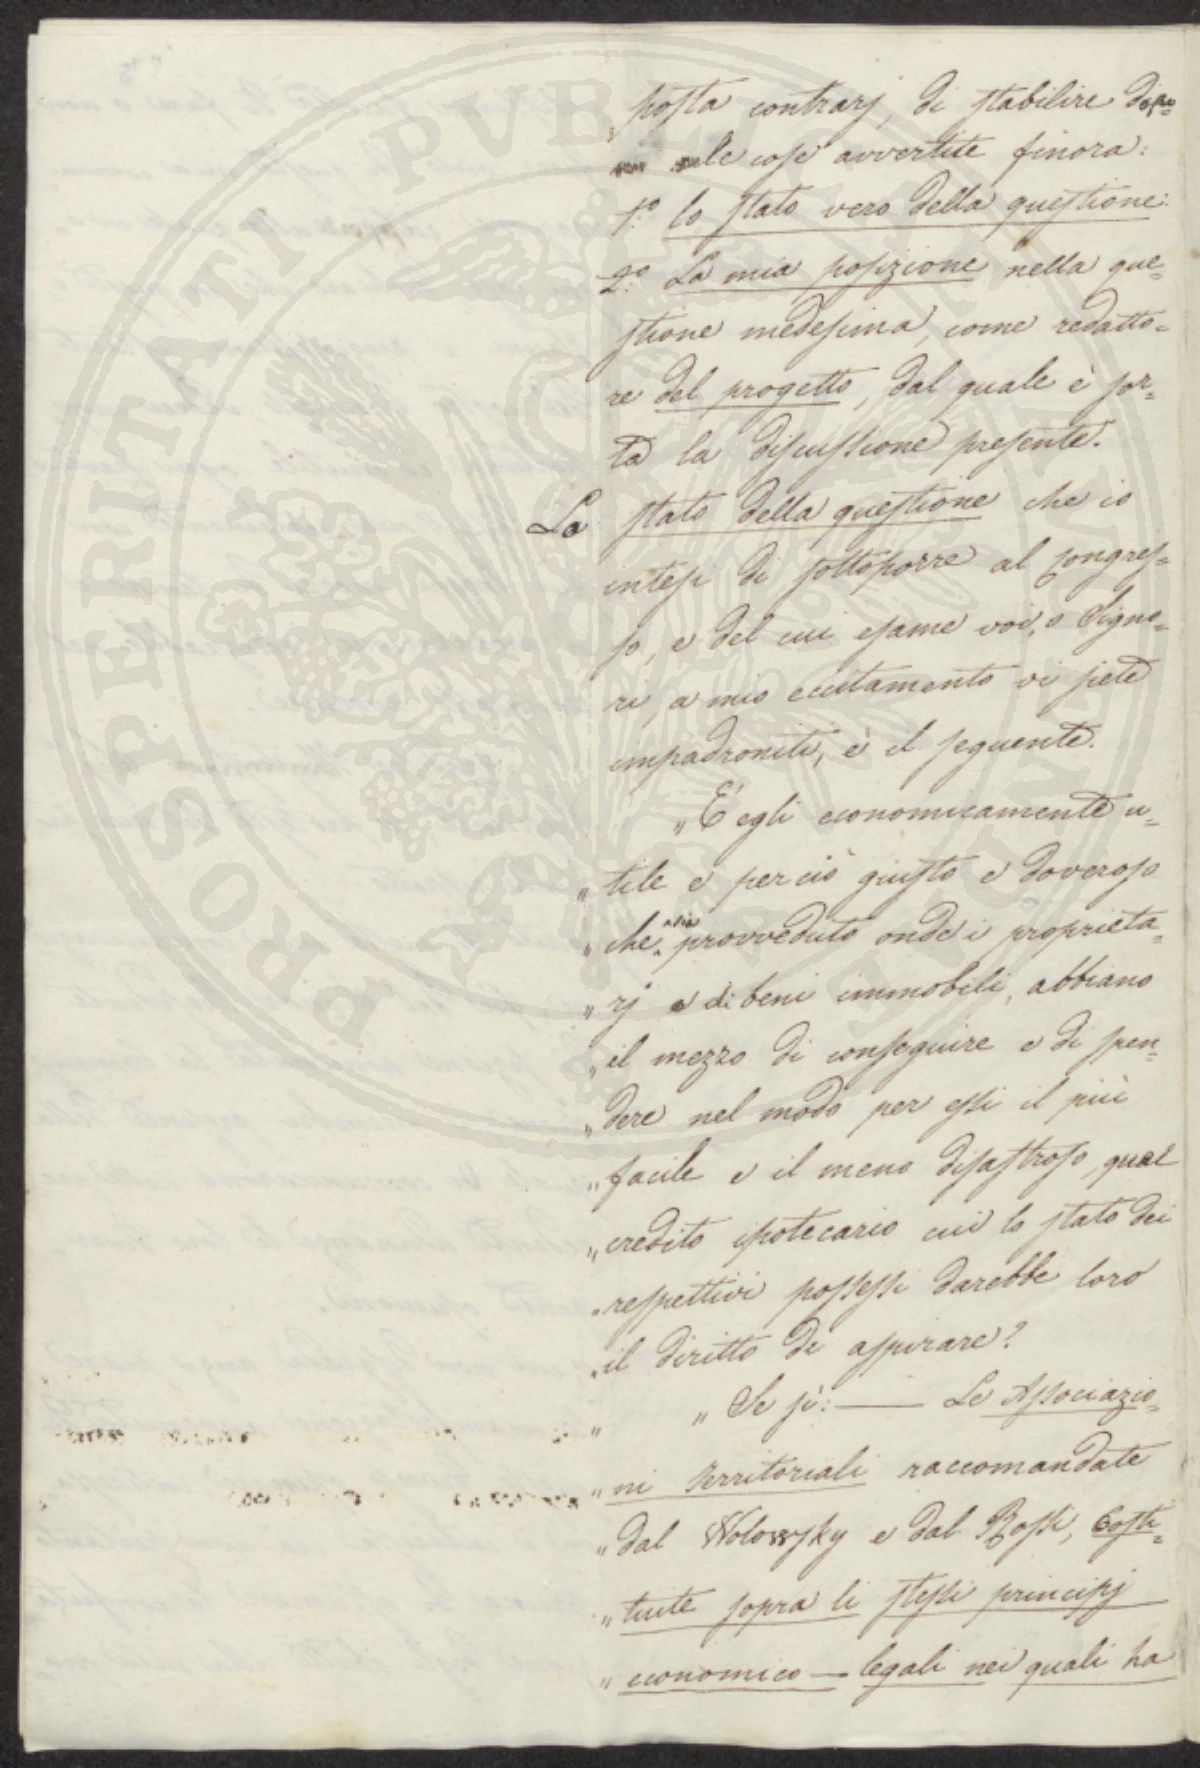 posta contrarj, di stabilire dopo
le cose avvertite finora:
1.° lo stato vero della questione:
2.° La mia posizione nella que=
stione medesima, come redatto=
re del progetto, dal quale è sor=
ta la discussione presente.
Lo stato della questione che io
intesi di sottoporre al Congres=
so, e del cui esame voi, o Signo=
ri, a mio eccitamento vi siete
impadroniti, è il seguente.
„ È egli economicamente u=
„ tile e per ciò giusto e doveroso
„ che sia provveduto onde i proprieta=
„ rj di beni immobili, abbiano
„ il mezzo di conseguire e di spen=
„ dere nel modo per essi il più
„ facile e il meno disastroso, quel
„ credito ipotecario cui lo stato dei
„ respettivi possessi darebbe loro
„ il diritto di aspirare?
„ „ Se sì: —— Le Associazio=
„ ni territoriali raccomandate
„ dal Wolowsky e dal Rossi, Costi=
„ tuite sopra li stessi principj
„ economico — legali nei quali ha
PROSPERITATI PVBLICAE